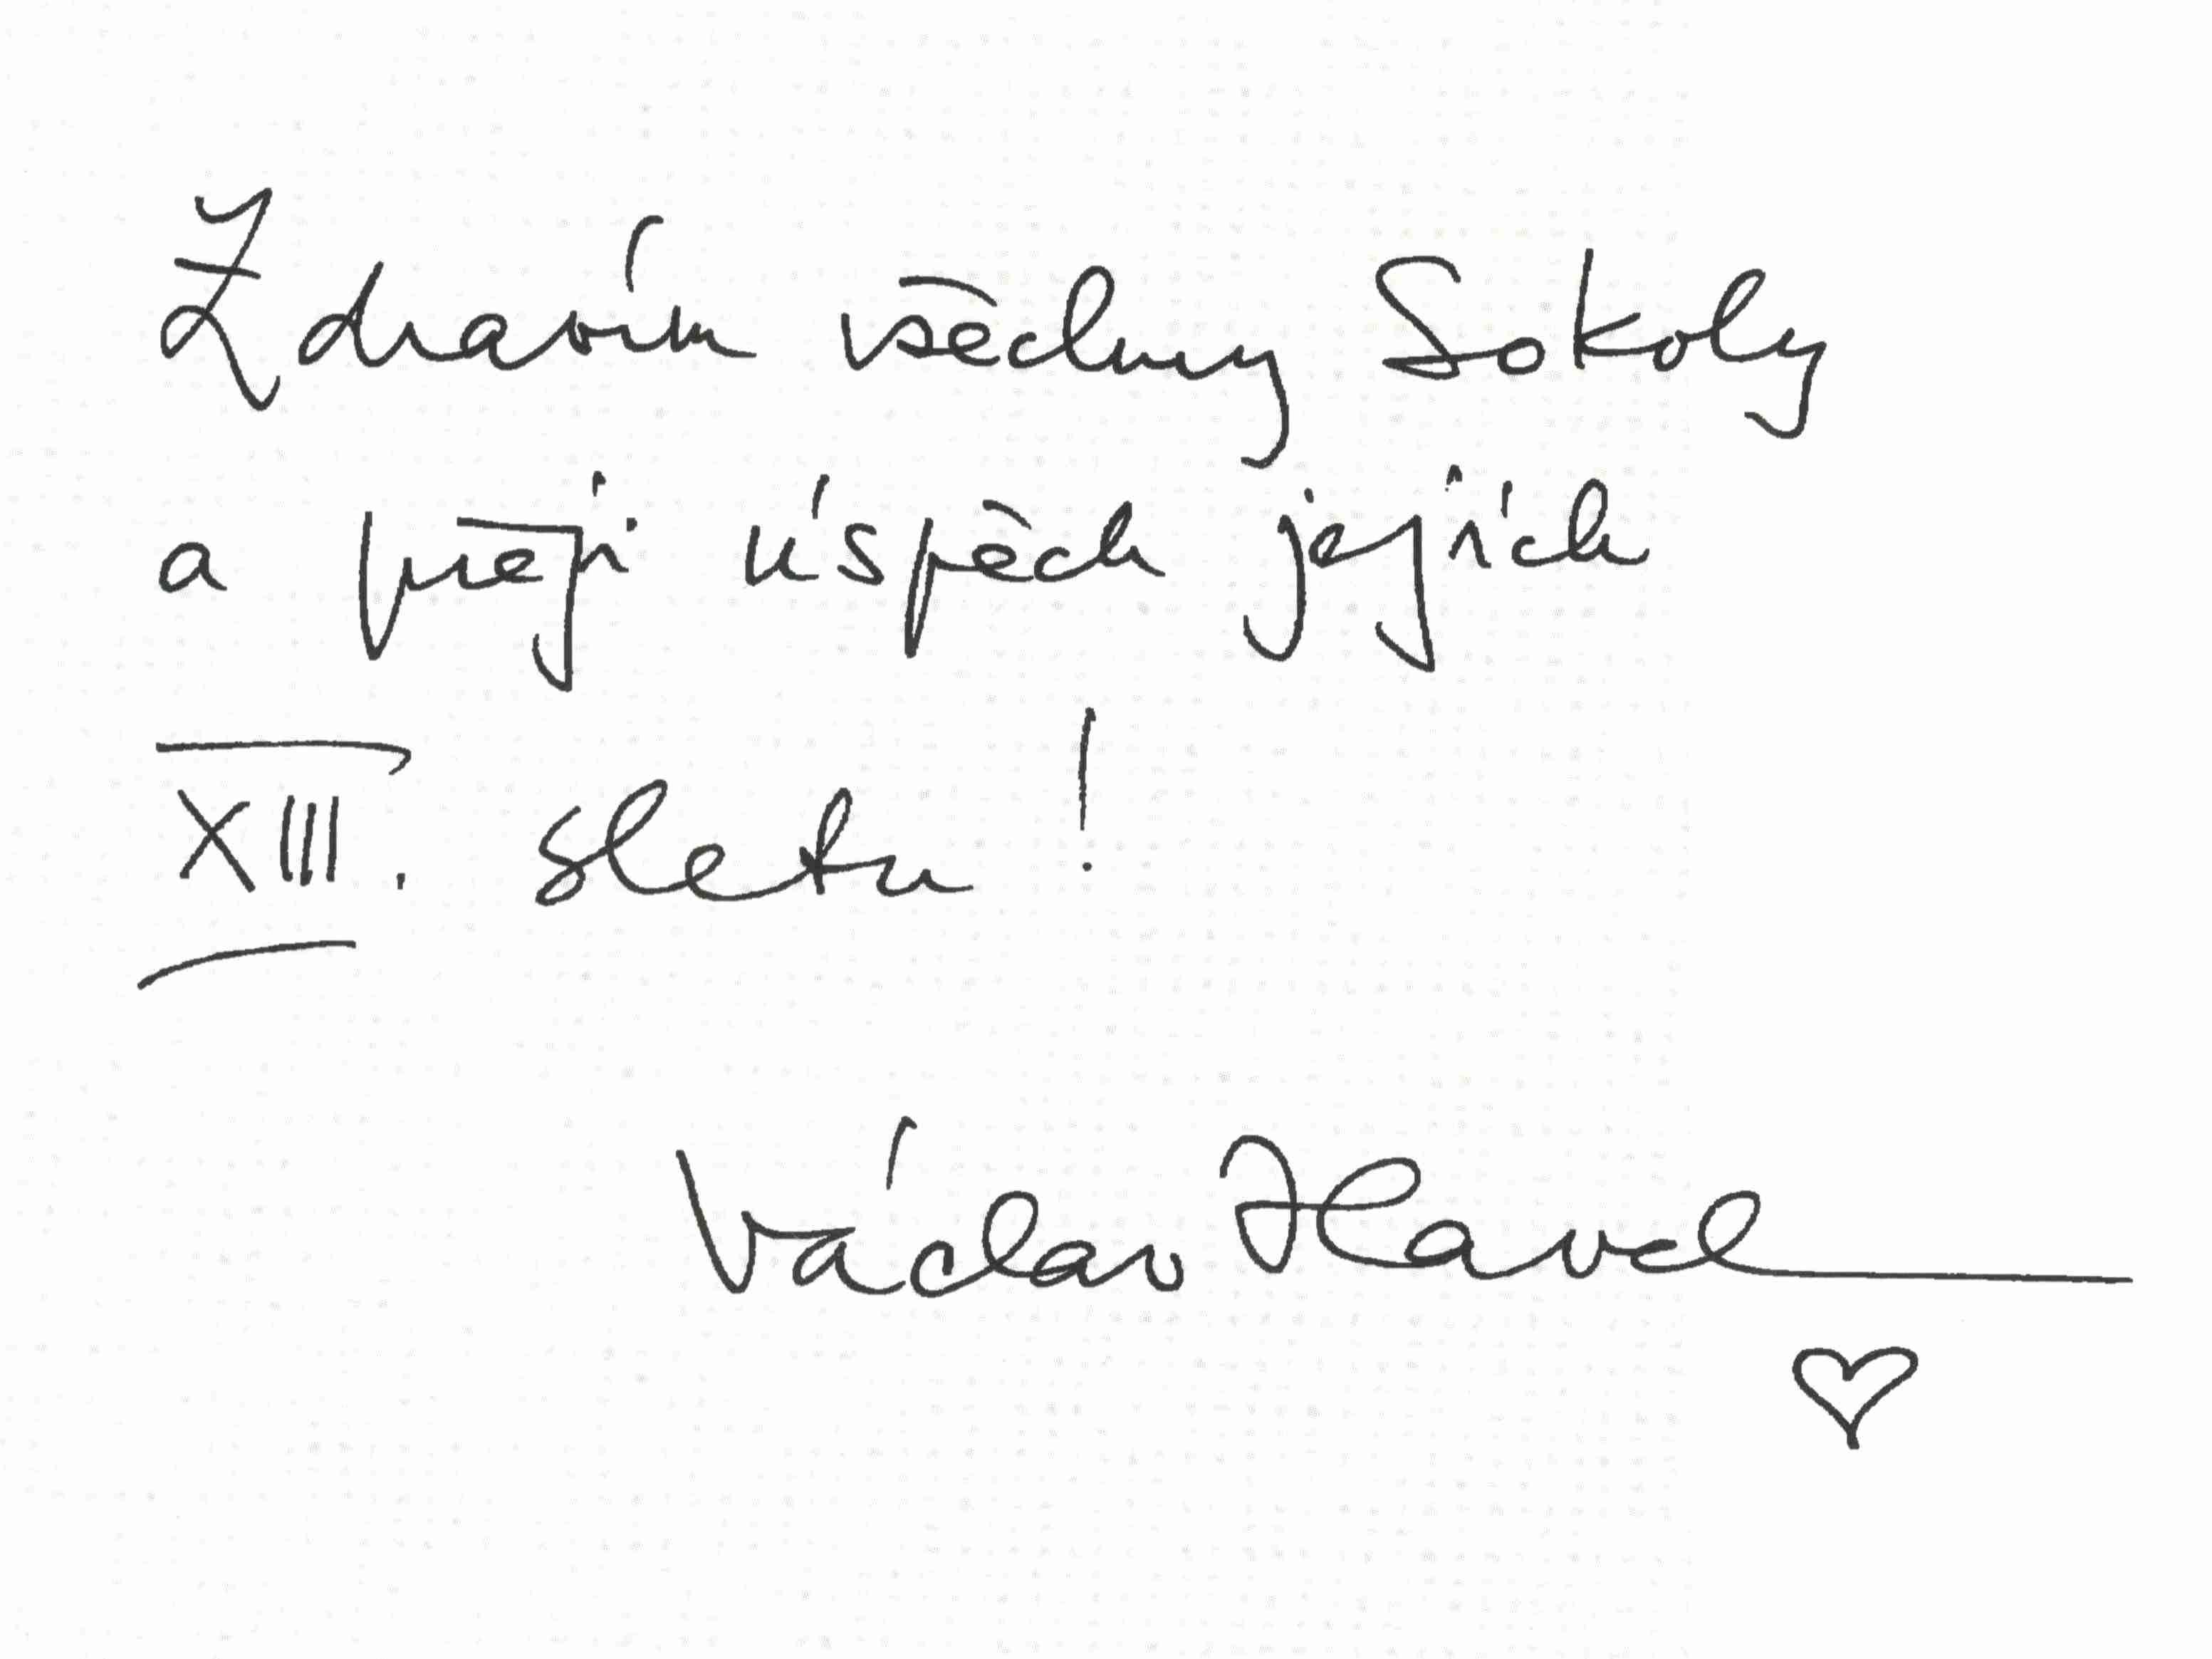 Zdravím všechny Sokoly
a přeji úspěch jejich
XIII. sletu!
Václav Havel